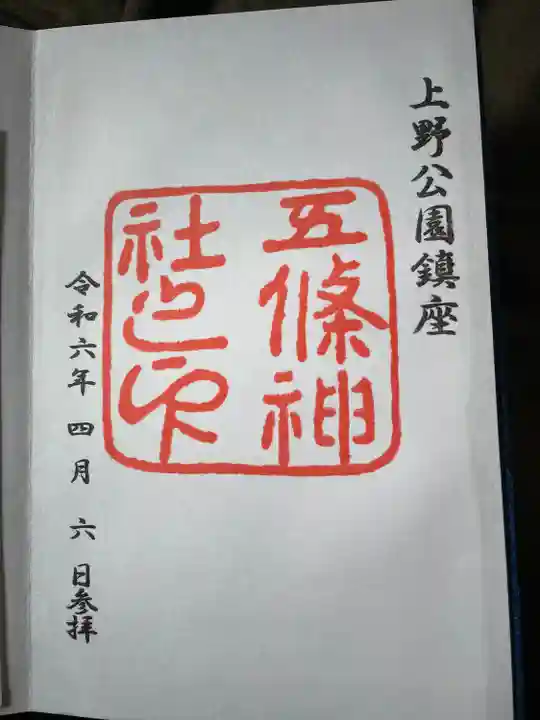 上野公園鎮座
五條神
社之印
令和六年 四月 六日参拝